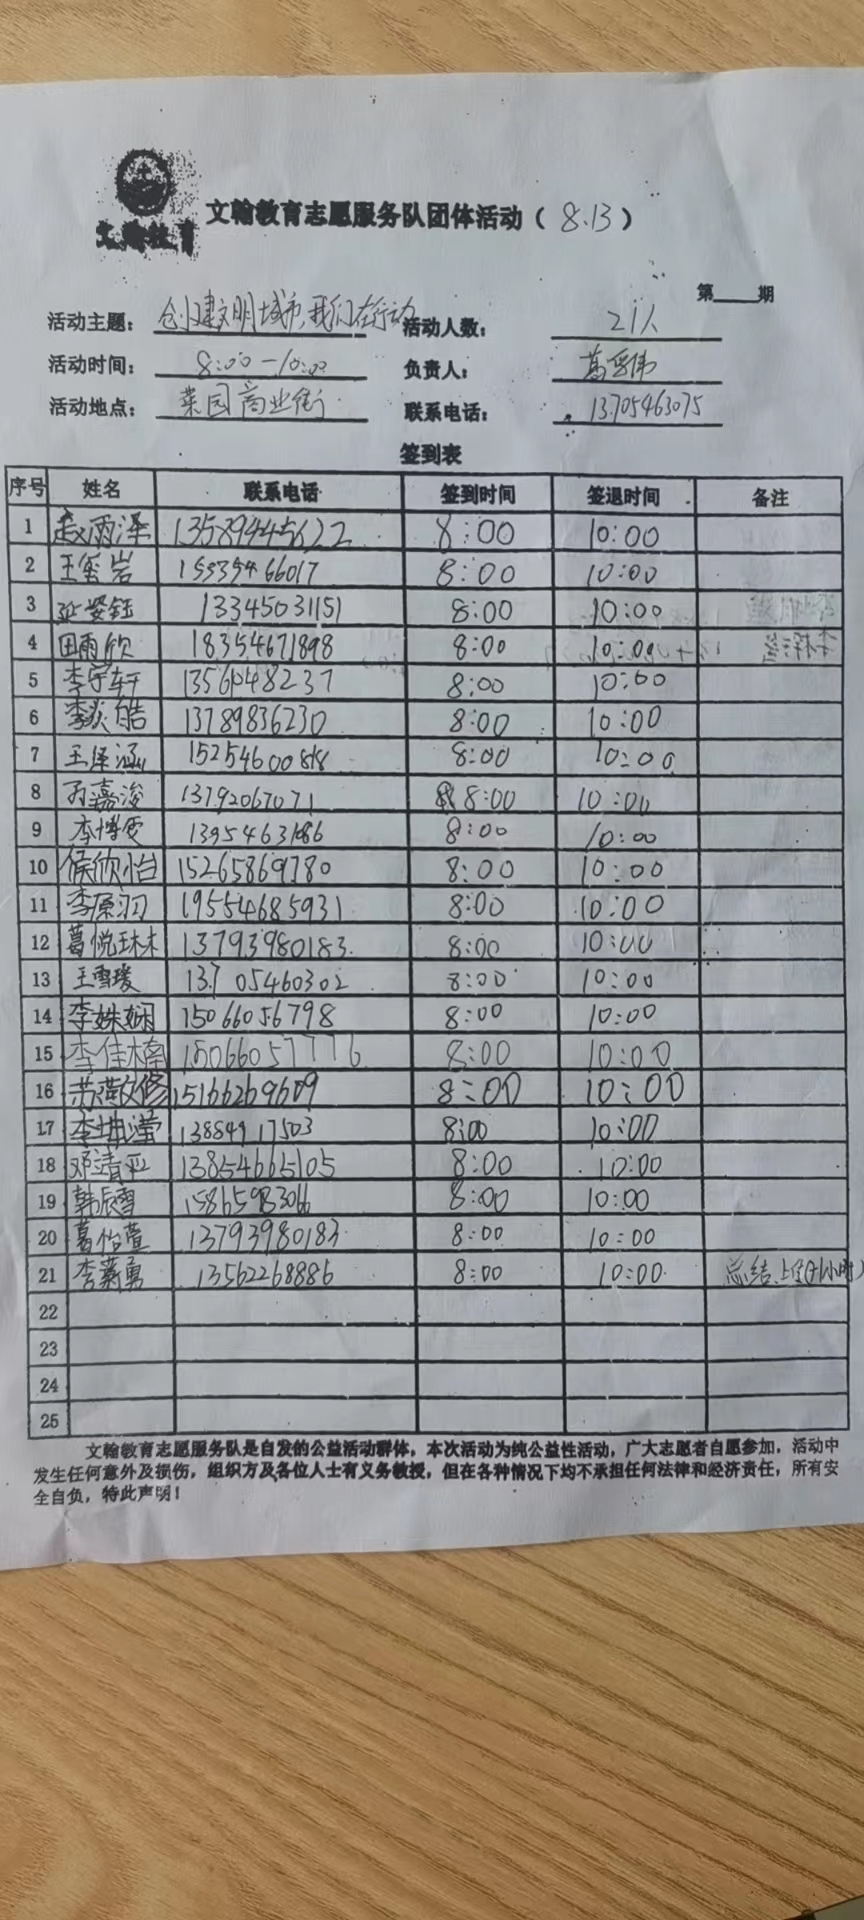 文翰教育
文翰教育志愿服务队团体活动（8.13）
第 期
活动主题：创建文明城市，我们在行动 活动人数：21人
活动时间：8:00-10:00 负责人：葛
活动地点：菜园商业街 联系电话：13705463075
签到表
序号 姓名 联系电话 签到时间 签退时间 备注
1 赵雨泽 13589445622 8:00 10:00
2 王玺岩 15339466017 8:00 10:00
3 延姿钰 13345031151 8:00 10:00
4 田雨欣 18354671898 8:00 10:00
5 李宇轩 1356048237 8:00 10:00
6 李炎皓 13789836230 8:00 10:00
7 王泽涵 8:00 10:00
8 孙嘉浚 13792067071 8:00 10:00
9 李博雯 8:00 10:00
10 侯欣怡 15265869780 8:00 10:00
11 李原羽 19554685931 8:00 10:00
12 葛悦琳 13793980183 8:00 10:00
13 王雪瑗 13705460302 8:00 10:00
14 李姝娴 15066056798 8:00 10:00
15 李佳楠 15066057776 8:00 10:00
16 苏敬修 15166269609 8:00 10:00
17 李坤滢 13884917503 8:00 10:00
18 邓靖亚 13854665105 8:00 10:00
19 韩辰雪 15865983066 8:00 10:00
20 葛怡萱 13793980183 8:00 10:00
21 李勇 13562268886 8:00 10:00 总结、上传(+1小时)
22
23
24
25
文翰教育志愿服务队是自发的公益活动群体，本次活动为纯公益性活动，广大志愿者自愿参加，活动中
发生任何意外及损伤，组织方及各位人士有义务救援，但在各种情况下均不承担任何法律和经济责任，所有安
全自负，特此声明！